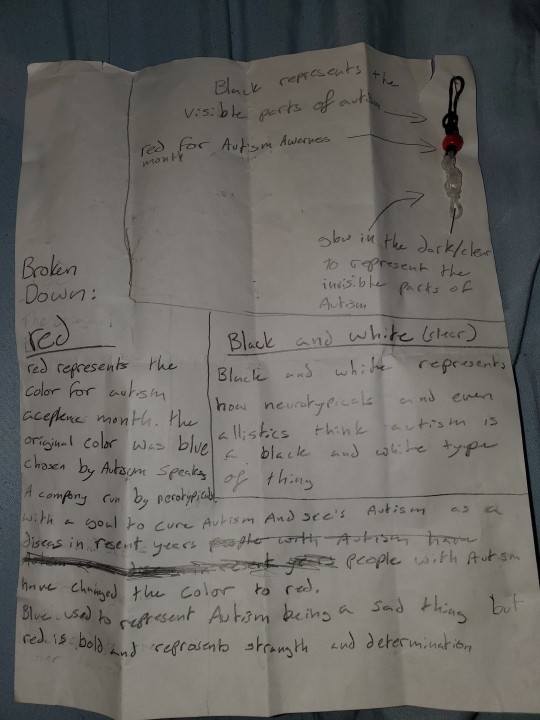 Black represents the
visible parts of autism
red for Autism Awarness
month
glow in the dark/clear
to represent the
invisible parts of
Autism
Broken
Down:
red
red represents the
color for autism
aceptence month. the
original color was blue
chosen by Autism Speaks
A company run by nerotypicals
with a goal to cure Autism And see's Autism as a
diseas in resent years people with Autism have
people with Autism
have changed the color to red.
Blue used to represent Autism being a sad thing but
red is bold and represents strangth and determination
Black and white (clear)
Black and white represents
how neurotypicals and even
allistics think autism is
a black and white type
of thing